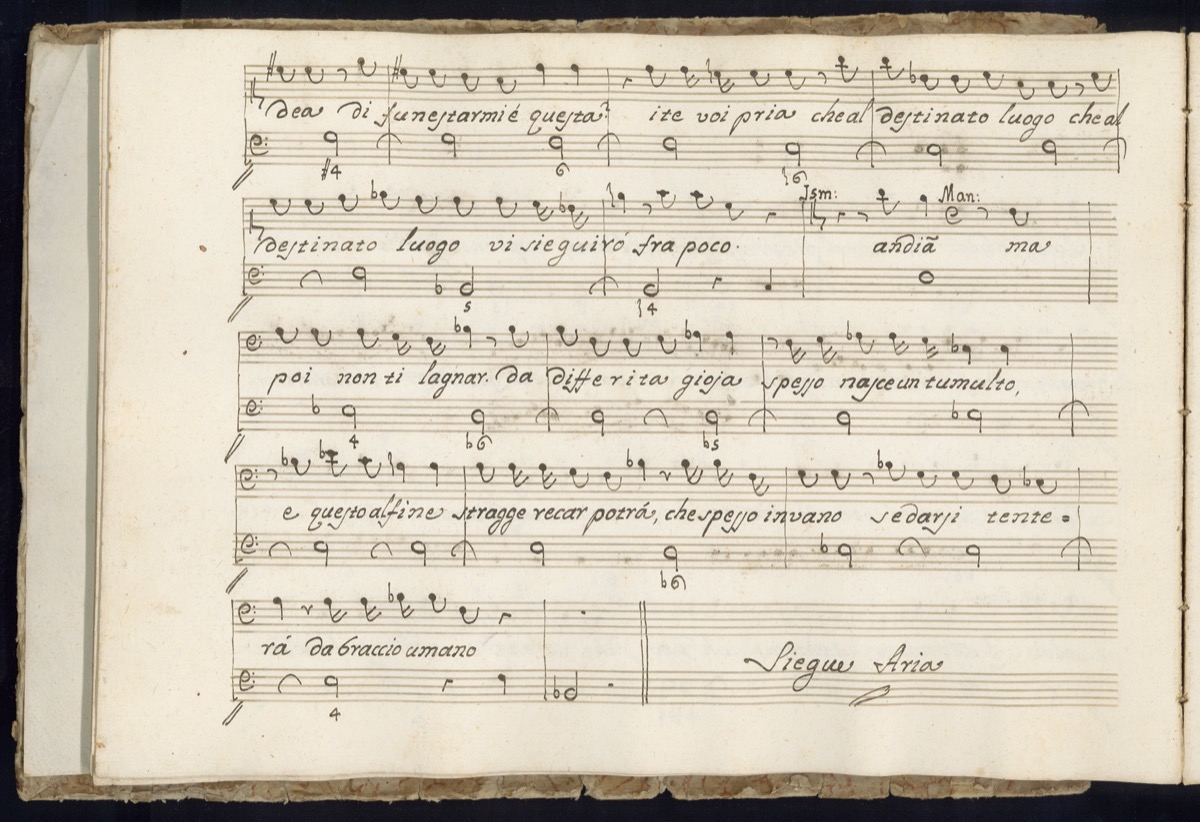 dea di funestarmi é questa? ite voi pria che al destinato luogo che al
#4 6 ♮6
Ism: Man:
destinato luogo vi sieguiró fra poco. andiã ma
5 ♮4
poi non ti lagnar. da differita gioja spesso nasce un tumulto,
4 ♭6 ♭5
e questo alfine stragge recar potrá, che spesso invano sedarsi tente=
♭6
rá da braccio umano
Siegue Aria
4